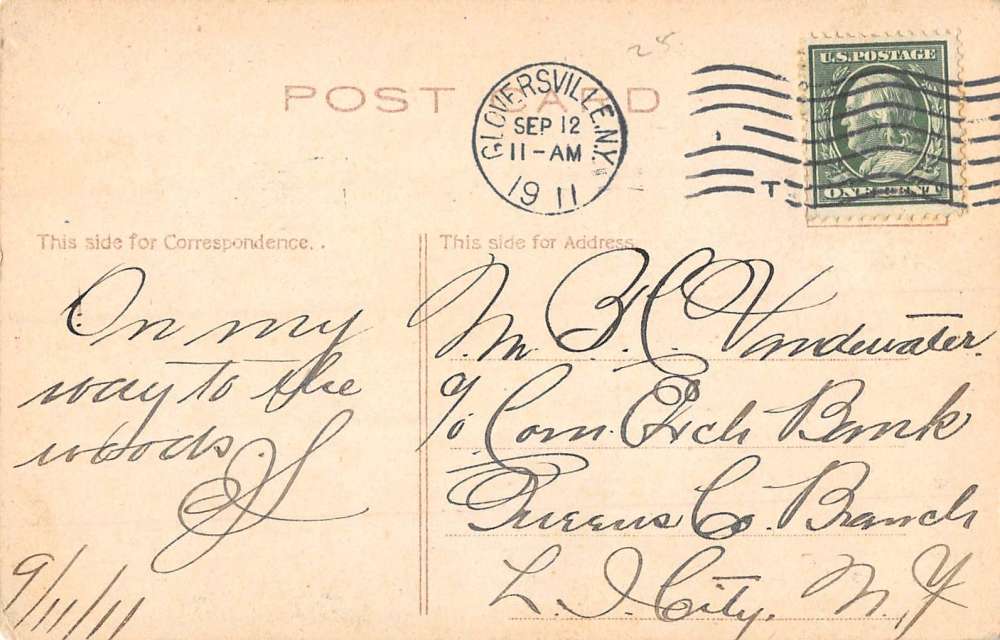 25
POST CARD
GLOVERSVILLE, N.Y.
SEP 12
11-AM
1911
U.S. POSTAGE
ONE CENT
T
This side for Correspondence. .
On my
way to the
woods.
9/11/11
This side for Address
Mr. B. C. Vandewater.
c/o Corn Exch Bank
Queens Co. Branch
L. I. City, N.Y